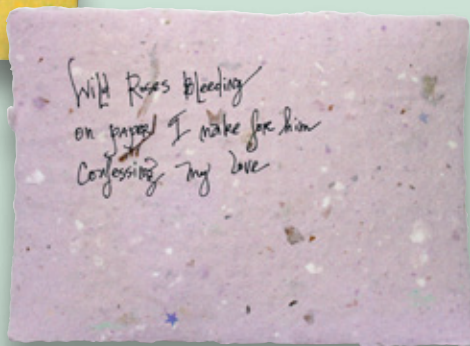 Wild Roses Bleeding
on paper I make for him
Confessing my Love